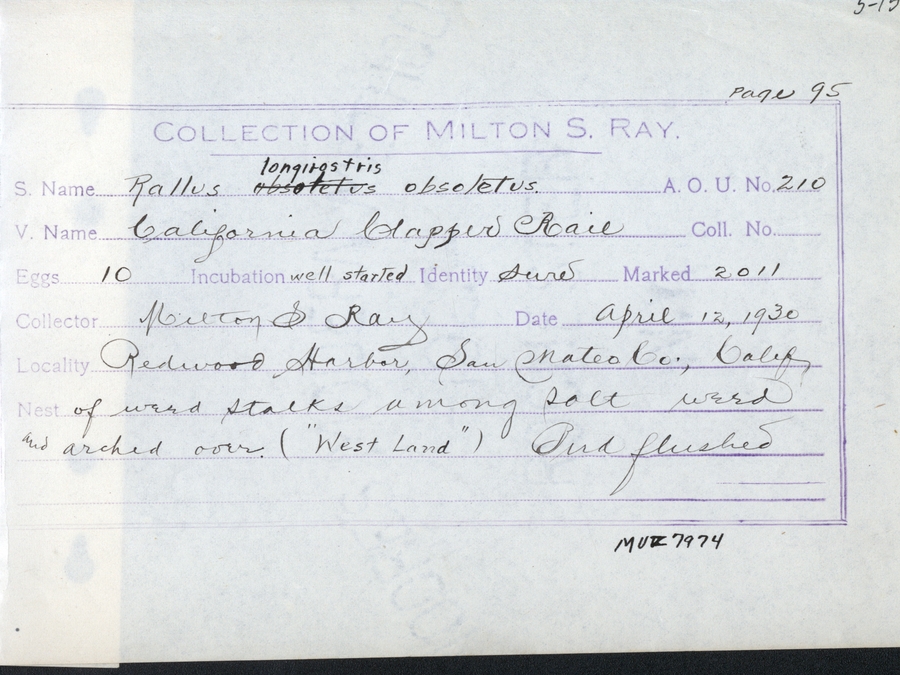 5-15
Page 95
COLLECTION OF MILTON S. RAY.
longirostris
S. Name Rallus obsoletus obsoletus. A. O. U. No. 210
V. Name California Clapper Rail Coll. No.
Eggs 10 Incubation well started Identity Sure Marked 2011
Collector Milton S Ray Date April 12, 1930
Locality Redwood Harbor, San Mateo Co., Calif.
Nest of weed stalks among salt weed
and arched over. ("West Land") Bird flushed
MVZ 7974